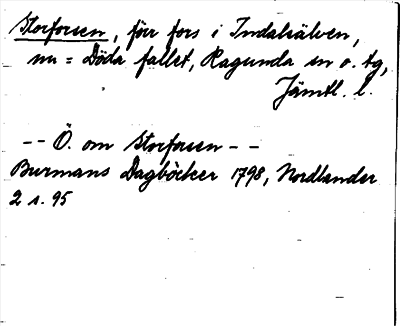 Storforsen, förr fors i Indalsälven,
nu = Döda fallet, Ragunda sn o. tg,
Jämtl. l.
-- Ö. om Storforsen --
Burmans Dagböcker 1798, Nordlander
2 s. 95